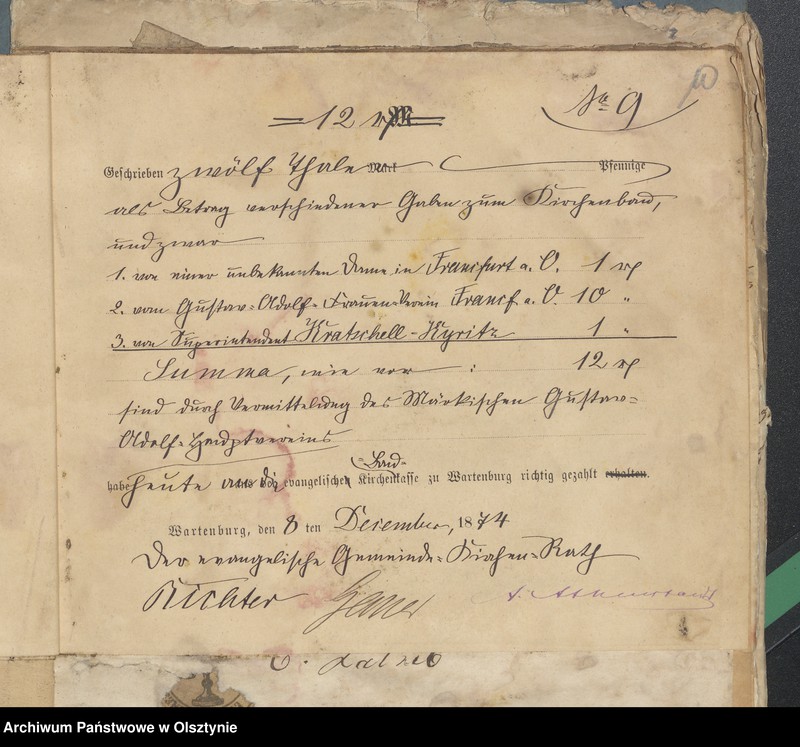 No 9
= 12 rℳ =
Geschrieben zwölf Thaler Mark Pfennige
als Betrag verschiedener Gaben zum Kirchenbau,
und zwar
1. von einer unbekannten Dame in Francfurt a. O. 1 r
2. vom Gustav-Adolf-Frauen-Verein Francf a. O. 10 "
3. von Superintendent Kratschell-Kyritz 1 "
Summa, wie vor : 12 r
sind durch Vermittelung des Märkischen Gustav-
Adolf-Hauptvereins
-Bau-
habe heute an die evangelische Kirchenkasse zu Wartenburg richtig gezahlt erhalten.
Wartenburg, den 8 ten Dezember, 1874
Der evangelische Gemeinde-Kirchen-Rath
Richter
Archiwum Państwowe w Olsztynie